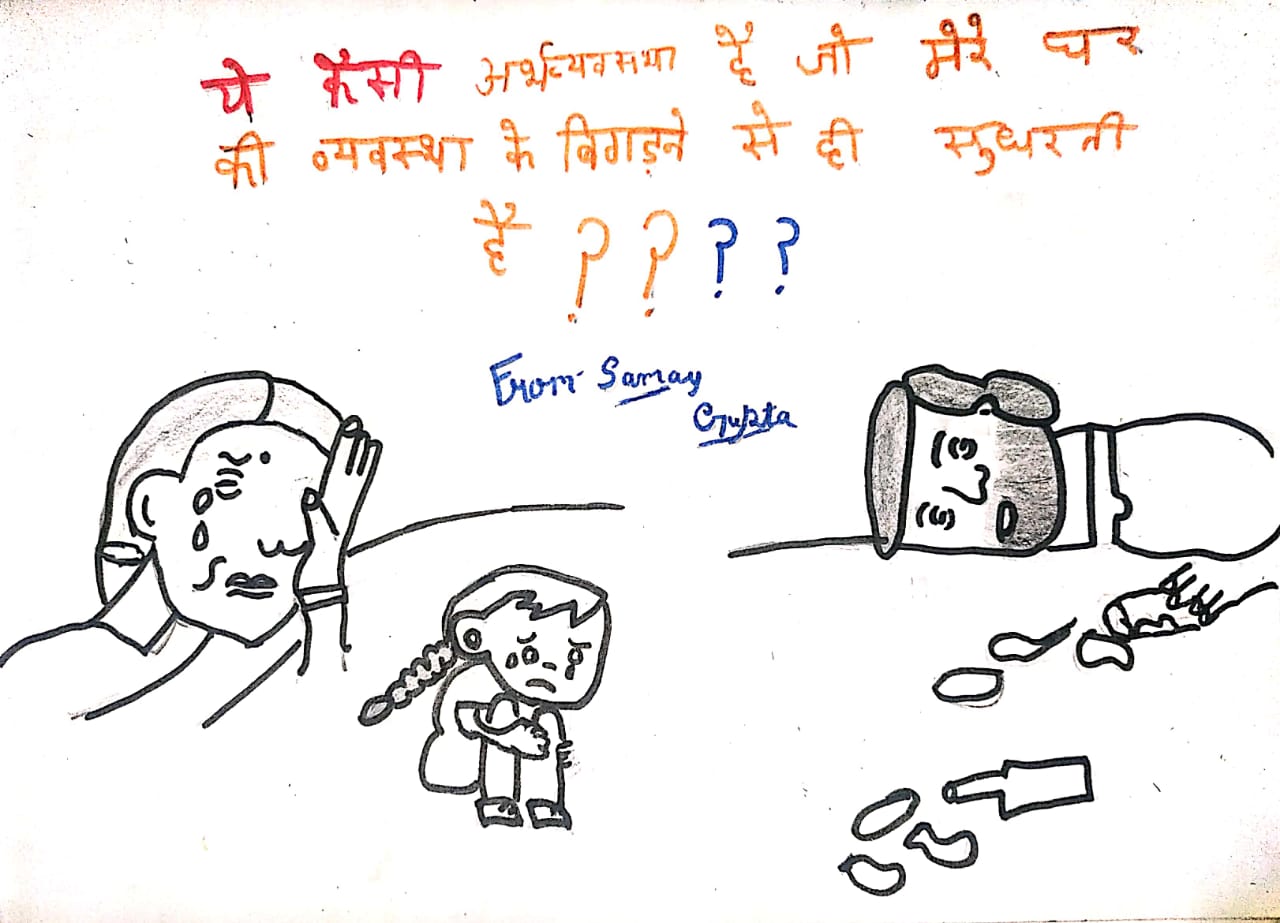 ये कैसी अर्थव्यवस्था है जो मेरे घर
की व्यवस्था के बिगड़ने से ही सुधरती
है ????
From Samay
Gupta